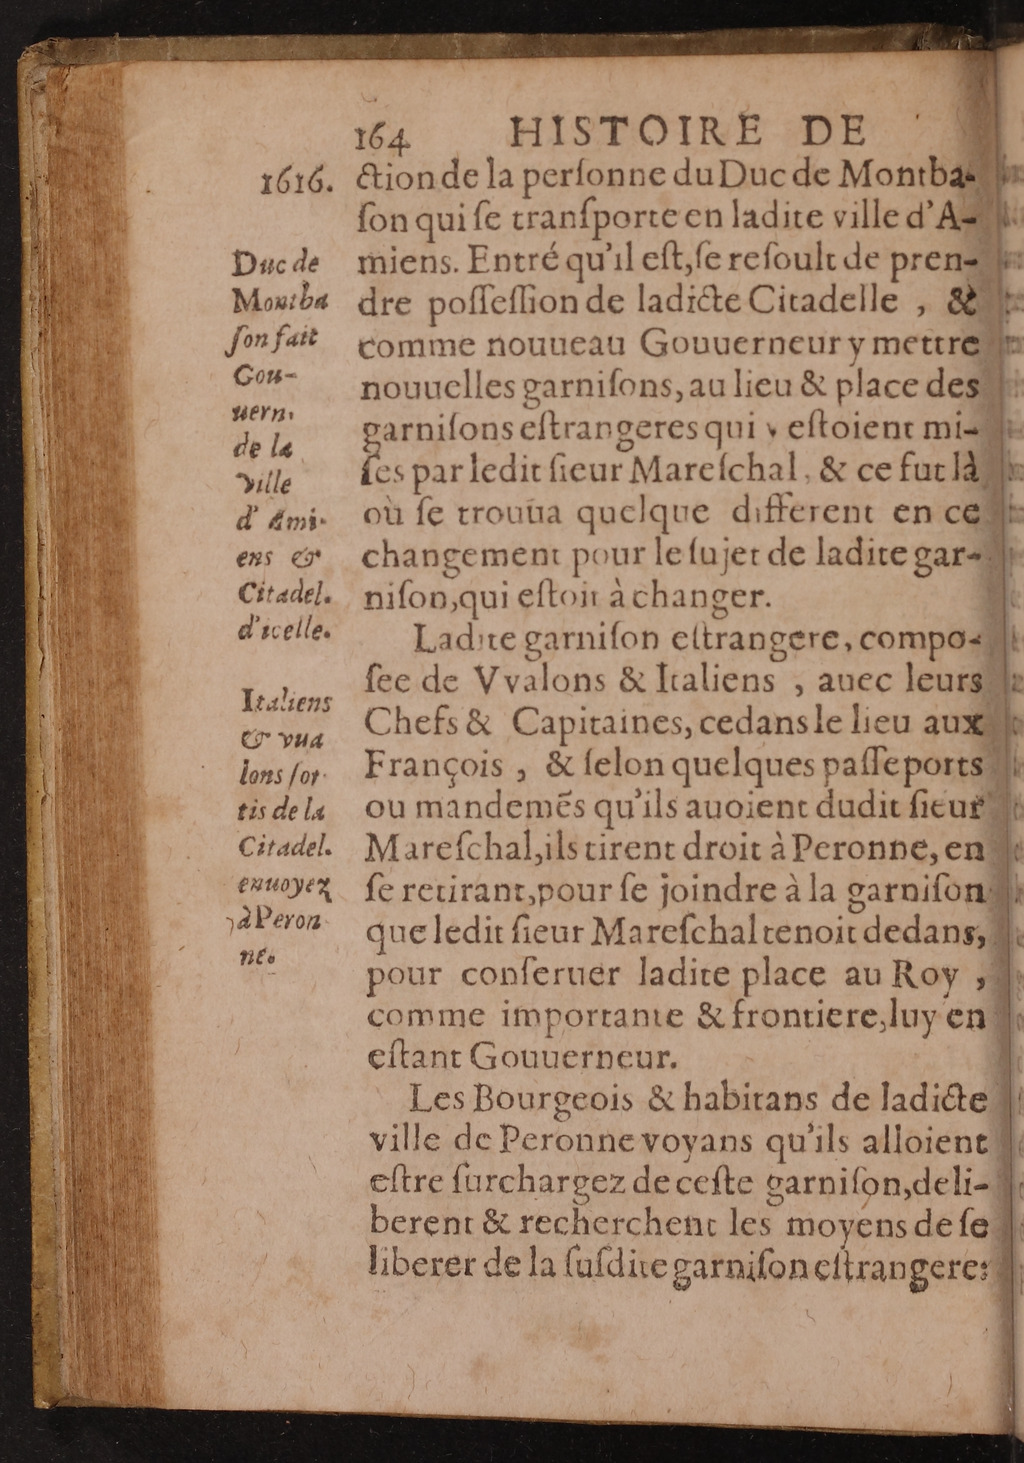 164 HISTOIRE DE
1616.
Duc de
Montba
ſon fait
Gou-
uern
de la
ville
d'Ami-
ens &
Citadel.
d'icelle.
Italiens
& vua
lons ſor
tis de la
Citadel.
enuoyez
à Peron
ne.
ction de la perſonne du Duc de Montba-
ſon qui ſe tranſporte en ladite ville d'A-
miens. Entré qu'il eſt, ſe reſoult de pren-
dre poſſeſſion de ladicte Citadelle , &
comme nouueau Gouuerneur y mettre
nouuelles garniſons, au lieu & place des
garniſons eſtrangeres qui y eſtoient mi-
ſes par ledit ſieur Mareſchal, & ce fut là
où ſe trouua quelque different en ce
changement pour le ſujet de ladite gar-
niſon, qui eſtoit à changer.
Ladite garniſon eſtrangere, compo-
ſee de Vvalons & Italiens , auec leurs
Chefs & Capitaines, cedans le lieu aux
François , & ſelon quelques paſſeports
ou mandemẽs qu'ils auoient dudit ſieur
Mareſchal, ils tirent droit à Peronne, en
ſe retirant, pour ſe joindre à la garniſon
que ledit ſieur Mareſchal tenoit dedans,
pour conſeruer ladite place au Roy ,
comme importante & frontiere, luy en
eſtant Gouuerneur.
Les Bourgeois & habitans de ladicte
ville de Peronne voyans qu'ils alloient
eſtre ſurchargez de ceſte garniſon, deli-
berent & recherchent les moyens de ſe
liberer de la ſuſdite garniſon eſtrangere: